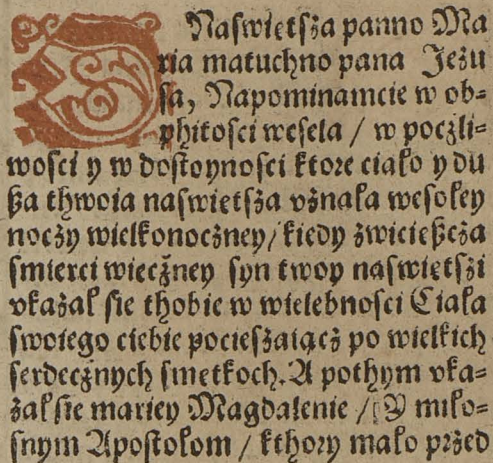 O Naswietsza panno Ma
ria matuchno pana Jezu
sa, Napominamcie w ob⸗
phitosci wesela / w poczli⸗
wosci y w dostoynosci ktore ciało y du
ßa thwoia naswietsza vznała wesołey
noczy wielkonoczney / kiedy zwicießcza
smierci wieczney syn twoy naswietszi
vkazał sie thobie w wielebnosci Ciała
swoiego ciebie pocieszaiącz po wielkich
serdecznych smetkoch. A pothym vka⸗
zał sie mariey Magdalenie / Y miło⸗
snym Apostołom / kthory mało przed